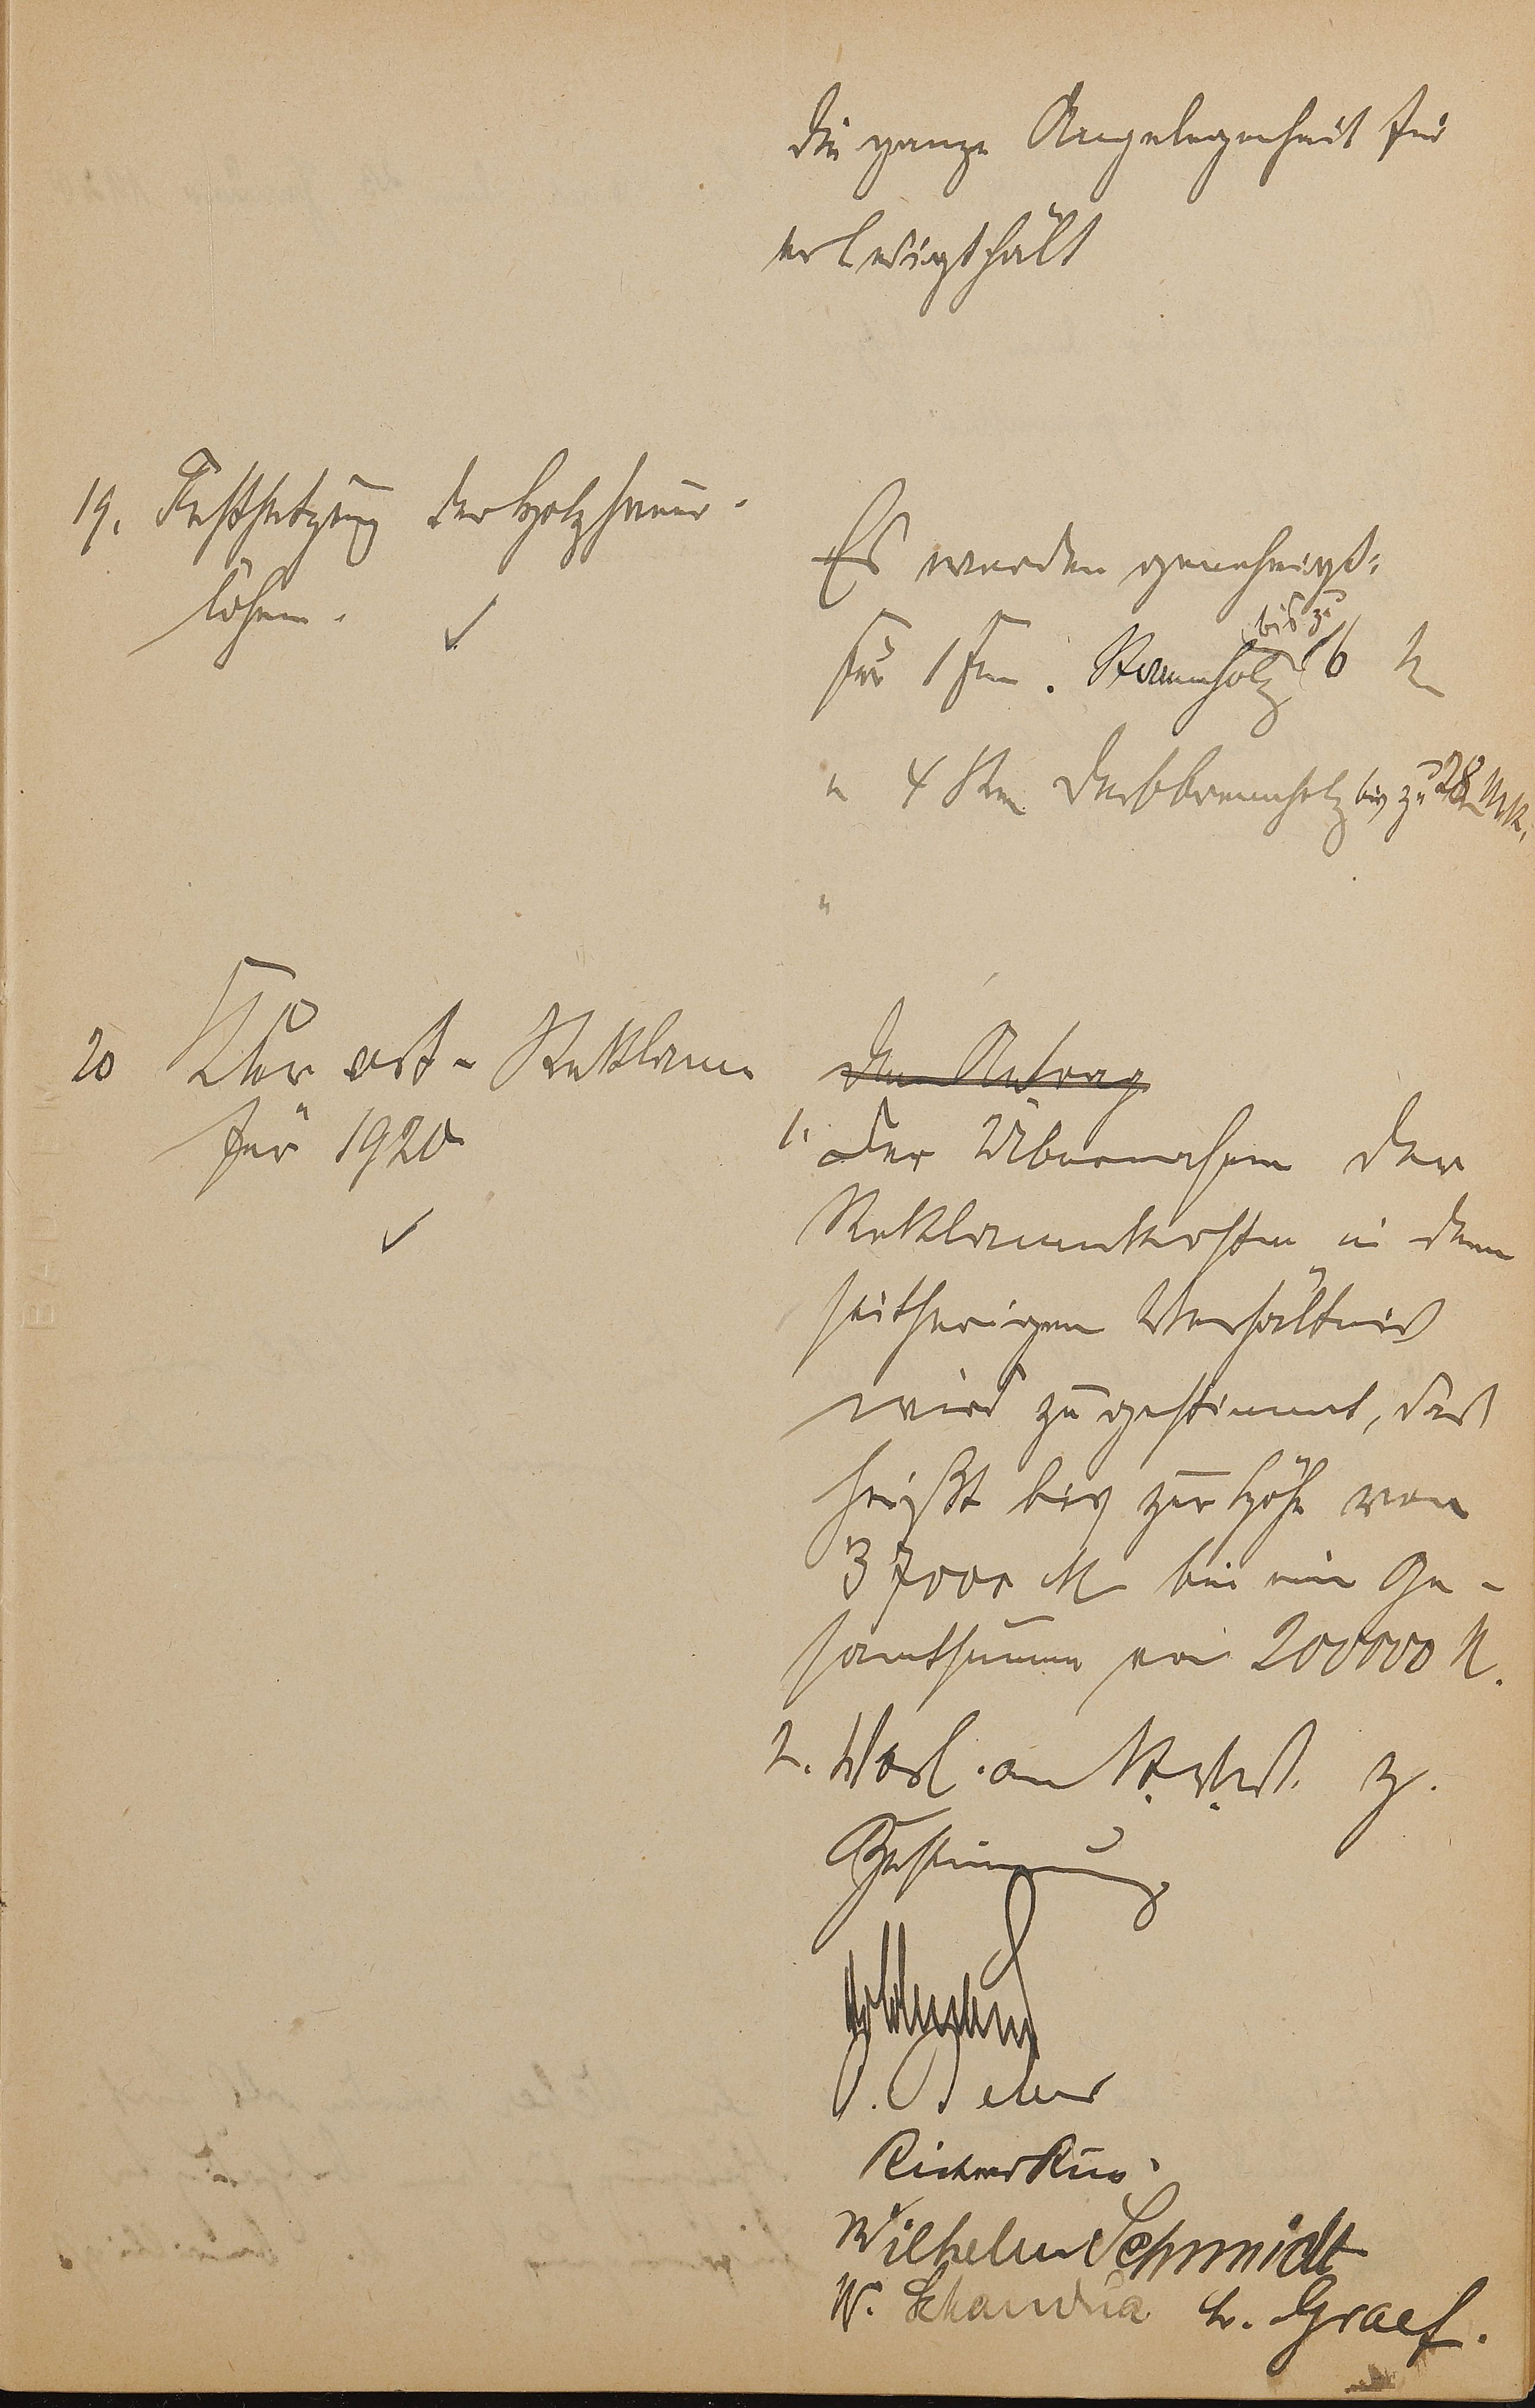 die ganze Angelegenheit für
erledigt hält
19. Festsetzung der Holzhauer-
löhne.
Es werden genehmigt:
bis zu
für 1 Fm. Stammholz 16 M
" 4 Rm Derbbrennholz bis zu 28 Mk.
"
20 Kurort-Reklame
für 1920
Den Antrag
1. Der Übernahme der
Reklamekosten in dem
seitherigen Verhältnis
wird zugestimmt, das
heißt bis zur Höhe von
37000 M bei ein Ge-
samtsumme von 200000 M.
2. Vorl. an St. V. V. z.
Zustimmung
Richard
Wilhelm Schmidt
W. Schandua L. Graef.